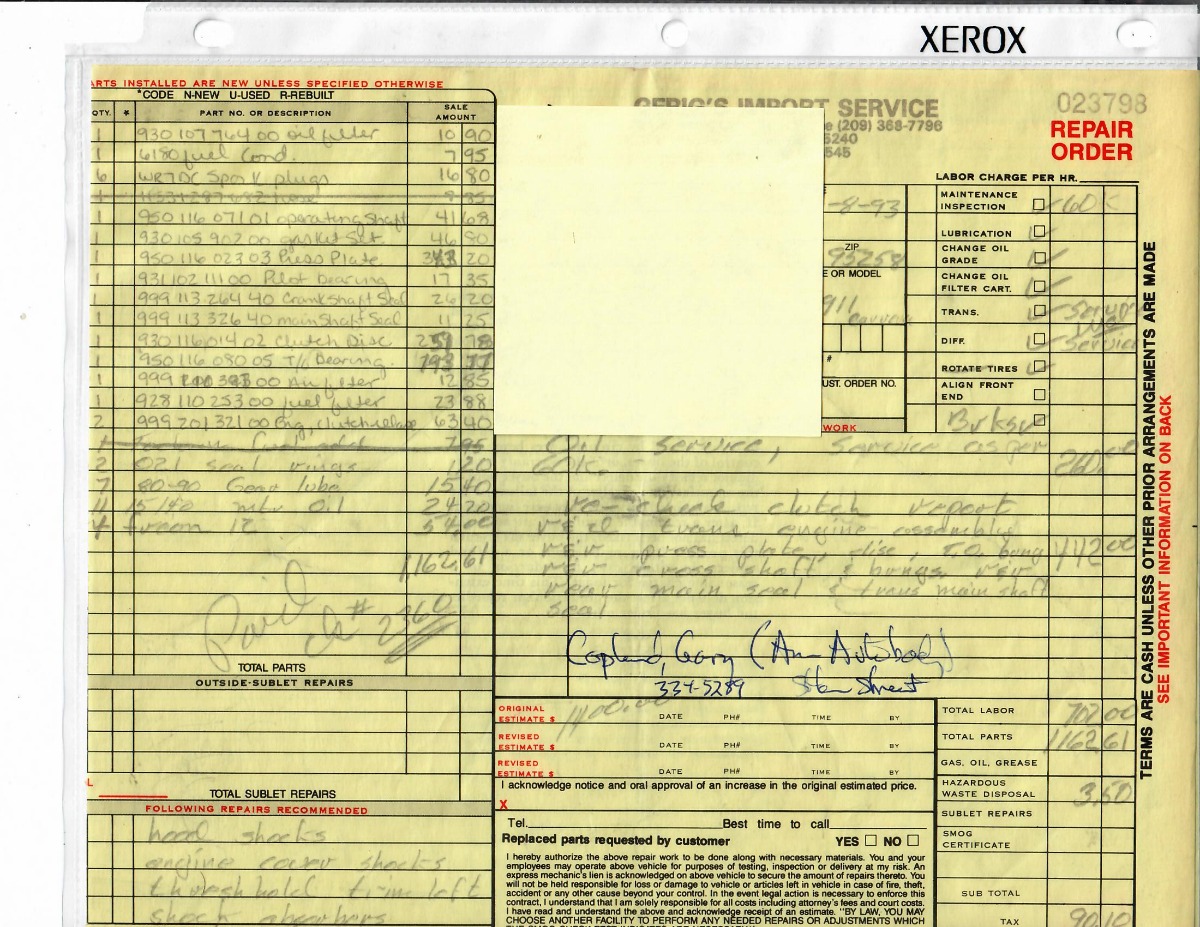 XEROX
ARTS INSTALLED ARE NEW UNLESS SPECIFIED OTHERWISE
*CODE N-NEW U-USED R-REBUILT
QTY. * PART NO. OR DESCRIPTION SALE AMOUNT
1 930 107 764 00 oil filter 10 90
1 6180 fuel Cond. 7 95
6 WR7DC Spark plugs 16 80
1 950 116 071 01 operating Shaft 41 68
1 930 105 902 00 gasket Set 46 80
1 950 116 023 03 Press Plate 20
1 931 102 111 00 Pilot bearing 17 35
1 999 113 264 40 Crankshaft Seal 26 20
1 999 113 326 40 main Shaft Seal 11 25
1 930 116 014 02 Clutch Disc 78
1 950 116 080 05 T/o Bearing 193 77
1 999 Air filter 12 85
1 928 110 253 00 fuel filter 23 88
2 999 201 321 00 Brg, clutch release 63 40
2 021 seal rings 1 20
7 80-90 Gear lube 15 40
11 15/40 mtr oil 24 20
4 freon 12 54.00
1162.61
Paid
ck# 2360
TOTAL PARTS
OUTSIDE-SUBLET REPAIRS
L
TOTAL SUBLET REPAIRS
FOLLOWING REPAIRS RECOMMENDED
hood shocks
engine cover shocks
threshhold trim left
shock absorbers
GERIG'S IMPORT SERVICE
e (209) 368-7796
5240
545
023798
REPAIR
ORDER
LABOR CHARGE PER HR.
-8-93
ZIP
95258
E OR MODEL
911
#
UST. ORDER NO.
WORK
MAINTENANCE INSPECTION 60K
LUBRICATION
CHANGE OIL GRADE
CHANGE OIL FILTER CART.
TRANS.
DIFF. Service
ROTATE TIRES
ALIGN FRONT END
Brks
Oil service, service as per
60K. 260.00
re-check clutch report
r&r trans engine assembly
r&r press plate, disc, T.O. brng 442 00
r&r cross shaft & brngs r&r
rear main seal & trans main shaft
seal
Copland, Gary (Am Autobody)
334-5289
ORIGINAL ESTIMATE $ 1400.00 DATE PH# TIME BY
REVISED ESTIMATE $ DATE PH# TIME BY
REVISED ESTIMATE $ DATE PH# TIME BY
I acknowledge notice and oral approval of an increase in the original estimated price.
X
Tel. Best time to call
Replaced parts requested by customer YES NO
I hereby authorize the above repair work to be done along with necessary materials. You and your
employees may operate above vehicle for purposes of testing, inspection or delivery at my risk. An
express mechanic's lien is acknowledged on above vehicle to secure the amount of repairs thereto. You
will not be held responsible for loss or damage to vehicle or articles left in vehicle in case of fire, theft,
accident or any other cause beyond your control. In the event legal action is necessary to enforce this
contract, I understand that I am solely responsible for all costs including attorney's fees and court costs.
I have read and understand the above and acknowledge receipt of an estimate. "BY LAW, YOU MAY
CHOOSE ANOTHER FACILITY TO PERFORM ANY NEEDED REPAIRS OR ADJUSTMENTS WHICH
TOTAL LABOR 702.00
TOTAL PARTS 1162.61
GAS, OIL, GREASE
HAZARDOUS WASTE DISPOSAL 3.50
SUBLET REPAIRS
SMOG CERTIFICATE
SUB TOTAL
TAX 90.10
TERMS ARE CASH UNLESS OTHER PRIOR ARRANGEMENTS ARE MADE
SEE IMPORTANT INFORMATION ON BACK